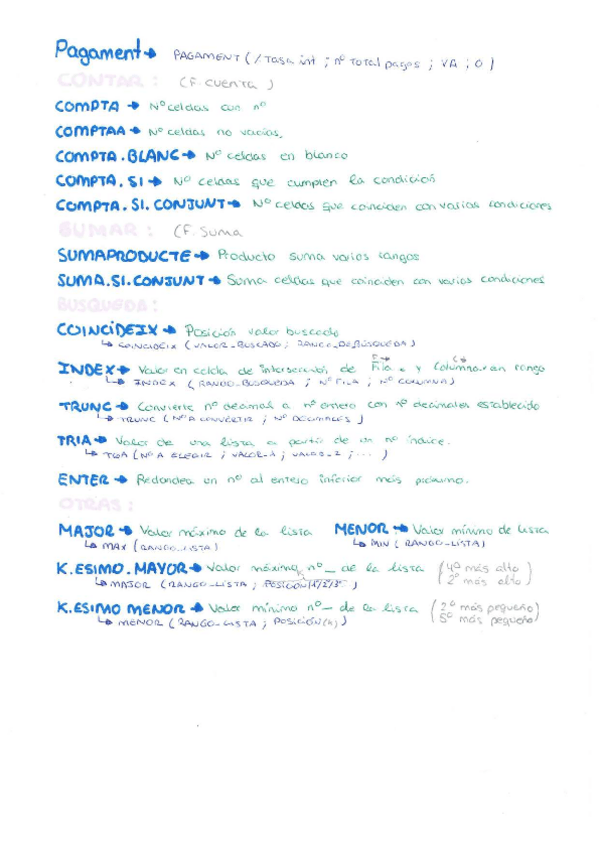 Pagament → PAGAMENT ( / Tasa int ; nº Total pagos ; VA ; 0 )
CONTAR : ( F. CUENTA )
COMPTA → Nº celdas con nº
COMPTAA → Nº celdas no vacías.
COMPTA.BLANC → Nº celdas en blanco
COMPTA.SI → Nº celdas que cumplen la condición
COMPTA.SI.CONJUNT → Nº celdas que coinciden con varias condiciones
SUMAR : (F. Suma
SUMAPRODUCTE → Producto suma varios rangos
SUMA.SI.CONJUNT → Suma celdas que coinciden con varias condiciones
BUSQUEDA :
COINCIDEIX → Posición valor buscado
↳ COINCIDEIX ( VALOR_BUSCADO ; RANGO_DE BÚSQUEDA )
INDEX → Valor en celda de intersección de Fila y columna en rango
↳ INDEX ( RANGO_BUSQUEDA ; Nº FILA ; Nº COLUMNA )
TRUNC → Convierte nº decimal a nº entero con nº decimales establecido
↳ TRUNC ( Nº A CONVERTIR ; Nº DECIMALES )
TRIA → Valor de una lista a partir de un nº índice.
↳ TRIA ( Nº A ELEGIR ; VALOR_1 ; VALOR_2 ; ... )
ENTER → Redondea un nº al entero inferior más próximo.
OTRAS :
MAJOR → Valor máximo de la lista MENOR → Valor mínimo de lista
↳ MAX ( RANGO_LISTA ) ↳ MIN ( RANGO_LISTA )
K.ESIMO.MAYOR → Valor máximo nº _ de la lista ( 4º más alto
2º más alto )
↳ MAJOR ( RANGO_LISTA ; POSICIÓN )
K.ESIMO MENOR → Valor mínimo nº _ de la lista ( 2º más pequeño
5º más pequeño )
↳ MENOR ( RANGO_LISTA ; POSICIÓN (K) )